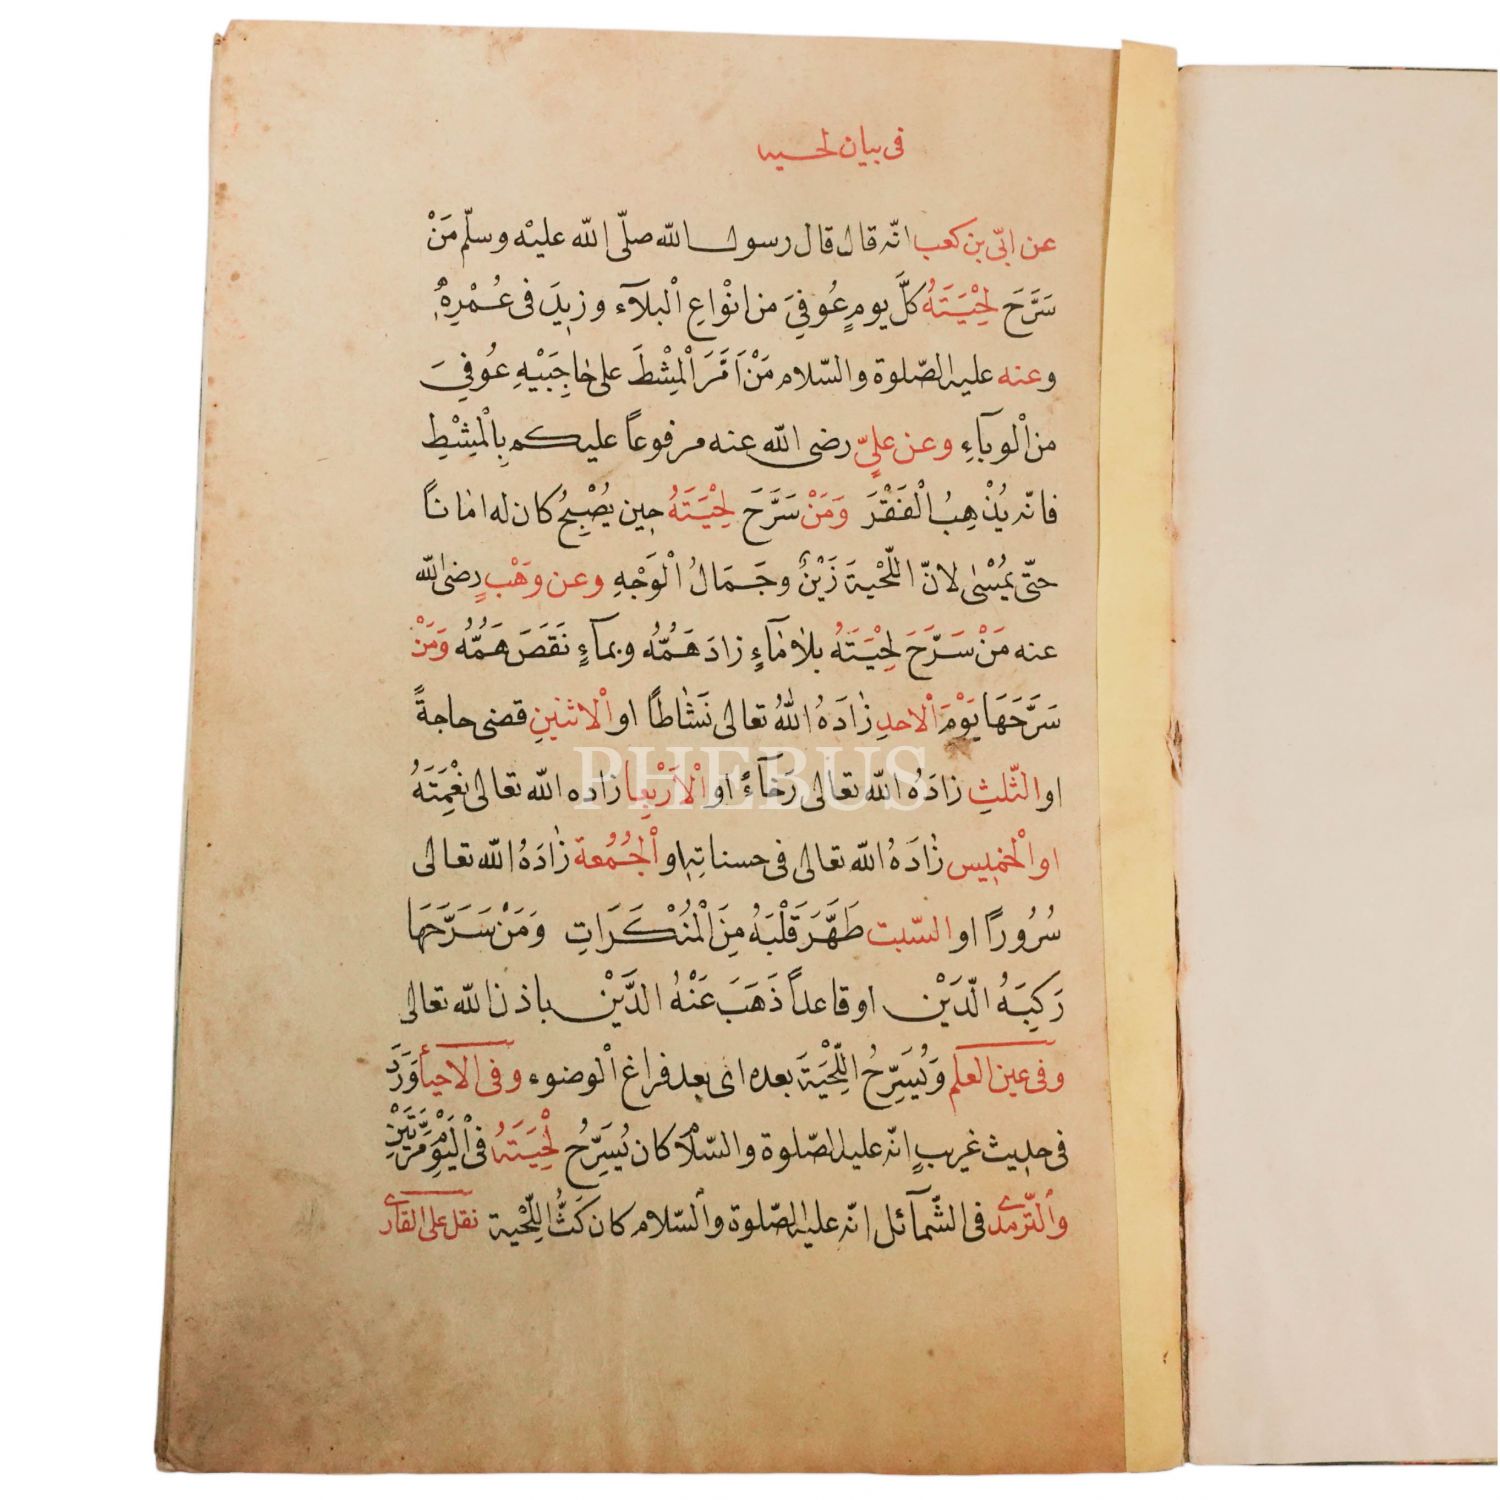 فى بيان لحيه
عن ابىّ بن كعب انّه قال قال رسول الله صلّى الله عليْه وسلّم مَنْ
سَرَّحَ لِحْيَتَهُ كلَّ يومٍ عُوفِىَ من انْواعِ الْبلَآء وزيدَ فى عُمْرِهِ
وعنه عليه الصّلوة والسّلام مَنْ اَمَّرَ الْمِشْطَ على حٰاجِبَيْهِ عُوفِىَ
من الْوبآءِ وعن علىٍّ رضى الله عنه مرفوعاً عليكم بِالْمِشْطِ
فانّه يُذْهِبُ الْفَقْرَ وَمَنْ سَرَّحَ لِحْيَتَهُ حين يُصْبِحُ كان له امٰاناً
حتّى يُمْسٰى لانّ اللّحْيةَ زَيْنٌ وجَمَالُ الْوَجْهِ وعن وَهْبٍ رضى الله
عنه مَنْ سَرَّحَ لِحْيَتَهُ بلٰا مٰآءٍ زادَ هَمُّهُ وبمآءٍ نَقَصَ هَمُّهُ وَمَنْ
سَرَّحَهَا يَوْمَ الْاحدِ زٰادَهُ اللهُ تعالى نَشٰاطًا او الْاثنينِ قضى حاجةً
او الثّلثِ زٰادَهُ الله تعالى رَخٰآءً او الْاَرْبِعا زاده الله تعالى نِعْمَتَهُ
او الْخميسِ زٰادَهُ الله تعالى فى حسناتِهِ او الْجُمُعة زٰادَهُ الله تعالى
سُرُوراً او السّبت طَهَّرَ قَلْبَهُ مِنَ الْمُنْكَرَاتِ وَمَنْ سَرَّحَهَا
رَكِبَهُ الدّيَنْ او قاعداً ذَهَبَ عَنْهُ الدَّيْنْ باذن الله تعالى
وفى عين العلم وَيُسَرِّحُ اللِّحْيَةَ بعده اى بعد فراغ الْوضوء وفى الاحيآ وَرَدَ
فى حديث غريبٍ انّه عليه الصّلوة والسّلام كان يُسَرِّحُ لِحْيَتَهُ فى الْيَوْمِ مَرَّتَيْنِ
والتّرمدى فى الشّمآئل انّه عليه الصّلوة والسّلام كان كَثَّ اللِّحْية نقل على القارى
PHEBUS